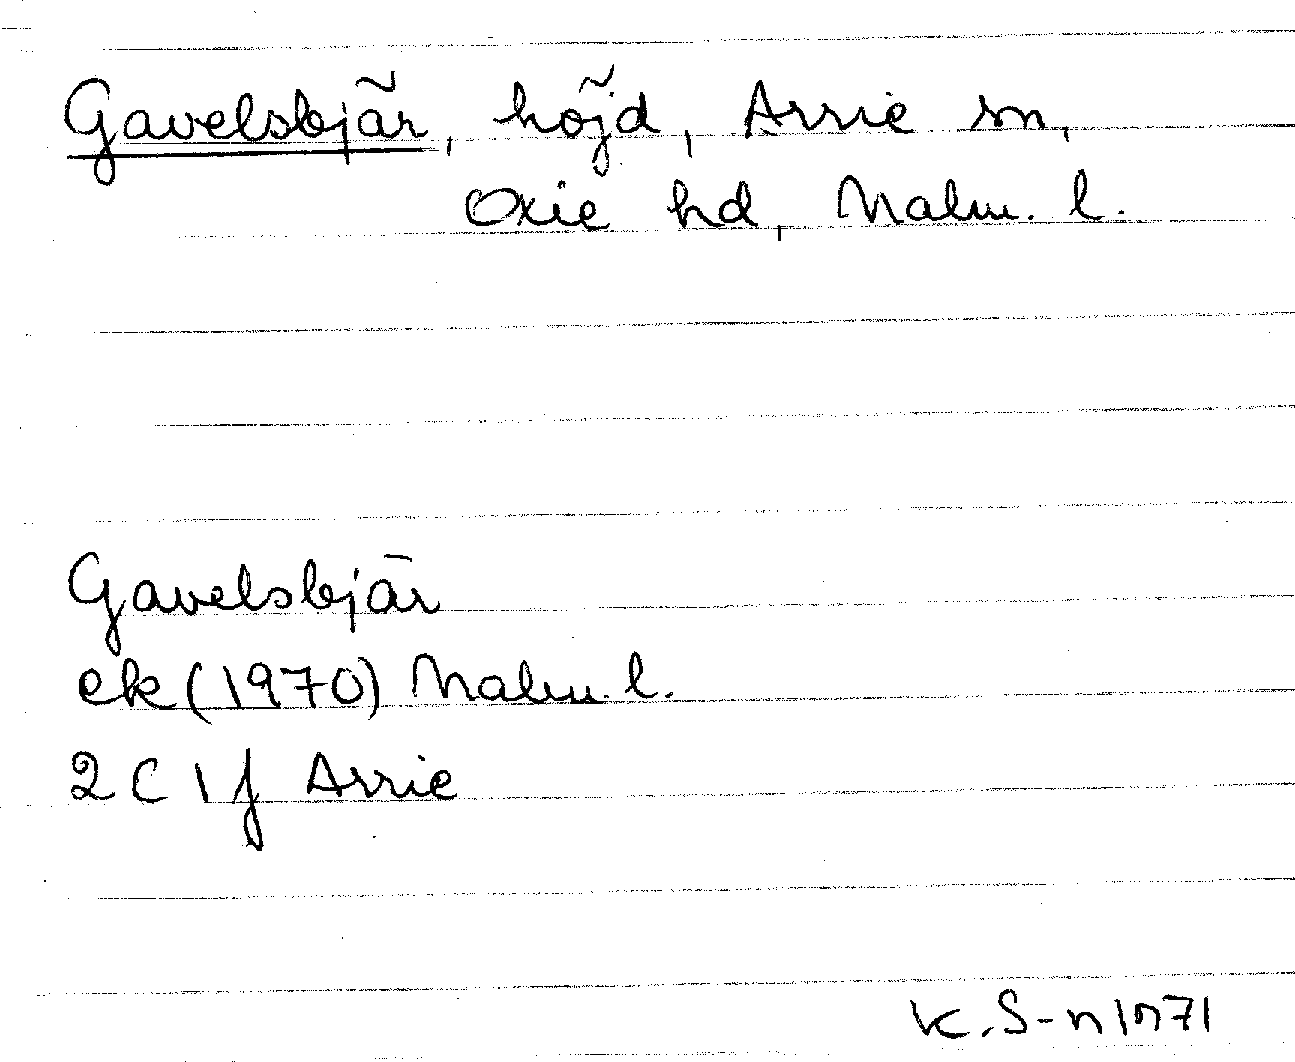 Gavelsbjär, höjd, Arrie sn,
Oxie hd, Malm. l.
Gavelsbjär
ek (1970) Malm. l.
2 C 1 f Arrie
K. S-n 1971